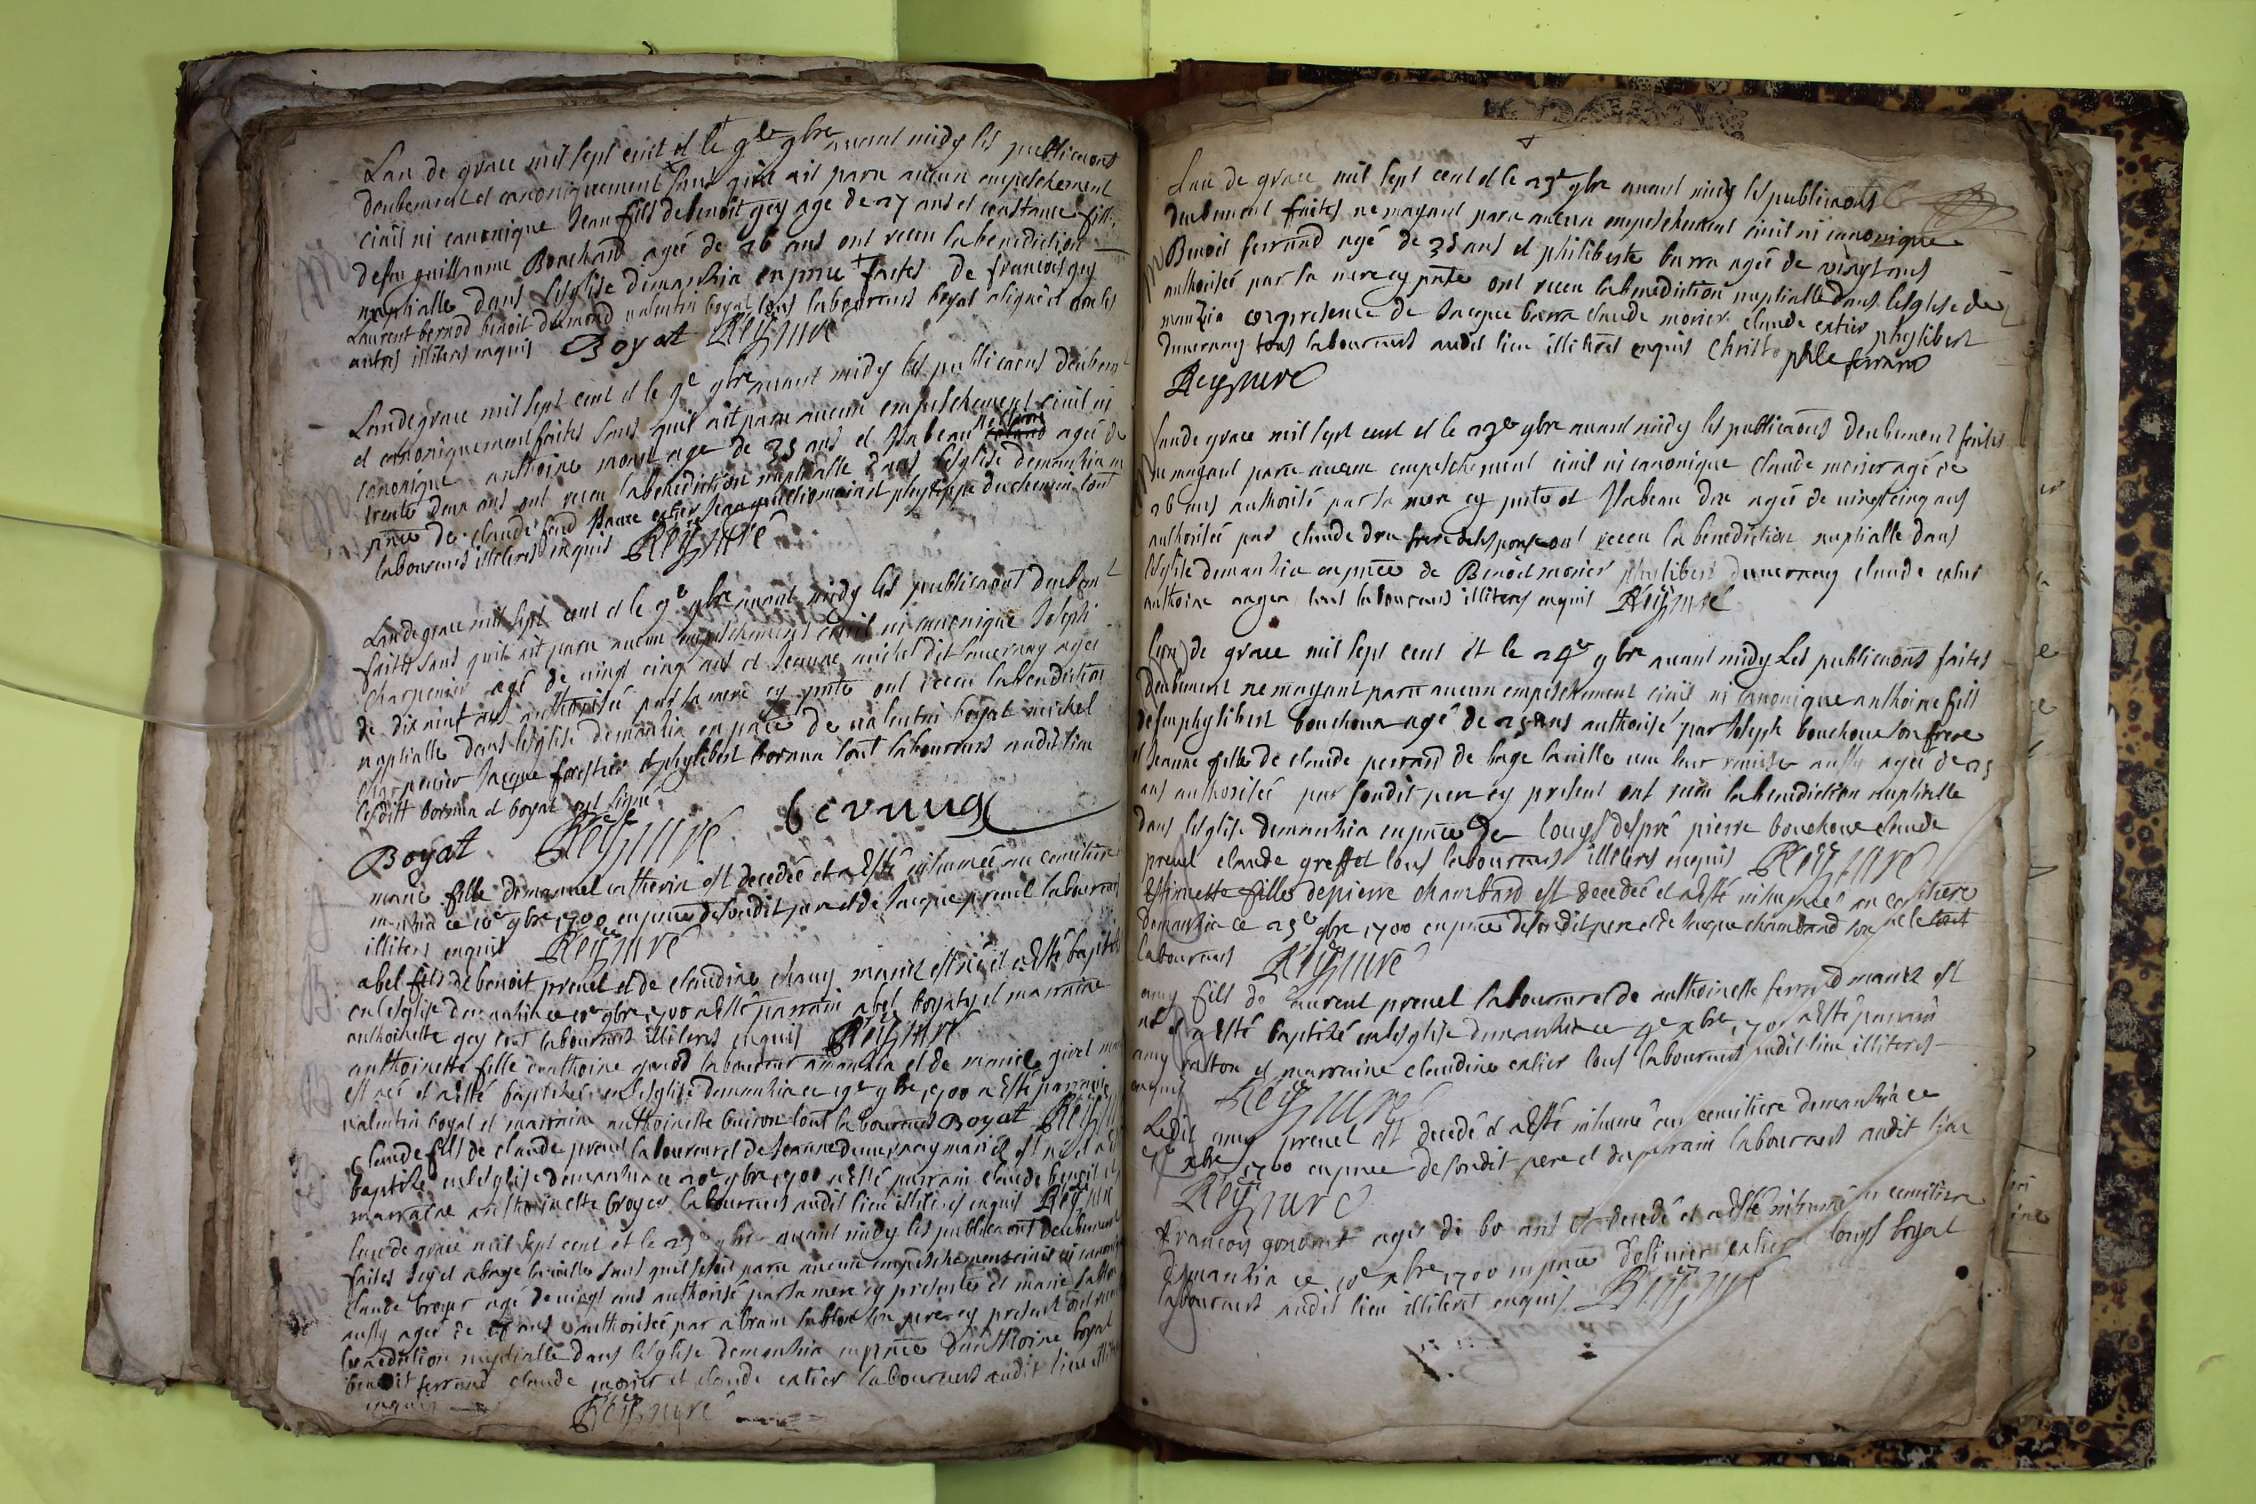 Lan de grace mil sept cent et le 9e 9bre avant midy les publicaons
deubement et canoniquement sans quil ait paru aucun empeschement
civil ni canonique Jean fils de benoit gey age de 27 ans et constance fille
de feu guillaume Bouchard agée de 26 ans ont receu la benediction
nuptialle dans leglise demanzia en pnce de francois gey
Laurent bernod benoit dumond valentin boyat tous laboureurs boyat a signé et non les
autres illiteres enquis Boyat Reÿ curé
Lan de grace mil sept cent et le 9e 9bre avant midy les publicaons deubemt
et canoniquement faites sans quil ait paru aucun empeschement civil ni
canonique anthoine morel age de 35 ans et ysabeau agée de
trente deux ans ont receu la benediction nuptialle dans leglise demanzia en
pnce de claude et phylippe duchesne tout
laboureurs illiteres enquis Reÿ curé
Lan de grace mil sept cent et le 9e 9bre avant midy les publicaons deubemt
faites sans quil ait paru aucun empeschement civil ni canonique Joseph
charpenier agé de vingt cinq ans et Jeanne michel dit agée
de dix neuf ans authorisée par sa mere cy pnte ont receu la benediction
nuptialle dans leglise demanzia en pnce de valentin boyat michel
charpenier Jacque forestier et phylibert tout laboureurs audit lieu
lesditts et boyat ont signé
Boyat Reÿ curé
marie fille demanuel catherin est decedée et a esté inhumée au cemitiere
manzia ce 10e 9bre 1700 en pnce desondit pere et de Jacque prevel laboureurs
illiteres enquis Reÿ curé
abel fils de benoit prevel et de claudine chany mariez est né et a esté baptisé
en leglise demanzia ce 9bre 1700 a esté parrain abel boyat et marraine
anthoinette gey tout laboureurs illiteres enquis Reÿ curé
anthoinette fille danthoine laboureur amanzia et de marie givel
est née et a esté baptisée en leglise demanzia ce 19e 9bre 1700 a esté parrain
valentin boyat et marraine anthoinette buiron tout laboureurs Boyat Reÿ
Claude fils de claude prevel laboureur et de Jeanne duvernay mariez est né et a esté
baptisé en leglise demanzia ce 20e 9bre 1700 a esté parrain claude benoit et
marraine anthoinette broyer laboureurs audit lieu illiteres enquis Reÿ curé
Lan de grace mil sept cent et le 23e 9bre avant midy les publicaons deubement
faites icy et abage la ville sans quil se soit paru aucun empeschement civil ni canonique
Claude broyer agé de vingt ans authorisé par sa mere cy presente et marie
aussy agée de ans authorisée par abram son pere cy present ont receu
benediction nuptialle dans leglise demanzia en pnce danthoine boyat
benoit ferrand claude morier et claude catier laboureurs audit lieu
enquis Reÿ curé
Lan de grace mil sept cent et le 23e 9bre avant midy les publicaons
deubement faites ne mayant paru aucun empeschement civil ni canonique
Benoit ferrand agé de 35 ans et philiberte barra agée de vingt ans
authorisée par sa mere cy pnte ont receu la benediction nuptialle dans leglise de
manzia en presence de Jacque barra claude morier claude catier phylibert
duvernay tous laboureurs audit lieu illiteres enquis Christophle ferrand
Reÿ curé
Lan de grace mil sept cent et le 23e 9bre avant midy les publicaons deubement faites
ne mayant paru aucun empeschement civil ni canonique claude morier agé de
26 ans authorisé par sa mere cy pnte et ysabeau dru agée de vingt cinq ans
authorisée par claude dru frere de lespouse ont receu la benediction nuptialle dans
leglise demanzia en pnce de Benoit morier phylibert duvernay claude catier
anthoine tous laboureurs illiteres enquis Reÿ curé
Lan de grace mil sept cent et le 24e 9bre avant midy Les publicaons faites
deubement ne mayant paru aucun empeschement civil ni canonique anthoine fils
de feu phylibert bouchoux agé de 25 ans authorisé par Joseph bouchoux son frere
et Jeanne fille de claude perrard de bage la ville veu leur remise aussy agée de 25
ans authorisée par sondit pere cy present ont receu la benediction nuptialle
dans leglise demanzia en pnce de Louys despré pierre bouchoux claude
prevel claude greffet tous laboureurs illiteres enquis Reÿ curé
Estiennette fille de pierre chambard est decedée et a esté inhumée au cemitiere
demanzia ce 25e 9bre 1700 en pnce desondit pere et de Jacque chambard son
laboureurs Reÿ curé
amy fils de Laurent prevel laboureur et de anthoinette ferrand mariez est
né et a esté baptisé en leglise demanzia ce 4e xbre 1700 a esté parrain
amy et marraine claudine catier tous laboureurs audit lieu illiteres
enquis Reÿ curé
Ledit amy prevel est decedé et a esté inhumé au cemitiere demanzia ce
xbre 1700 en pnce de sondit pere et du parrain laboureurs audit lieu
Reÿ curé
francois gonod agé de 60 ans est decedé et a esté inhumé au cemitiere
demanzia ce 10e xbre 1700 en pnce dolivier catier louys boyat
laboureurs audit lieu illiteres enquis Reÿ curé